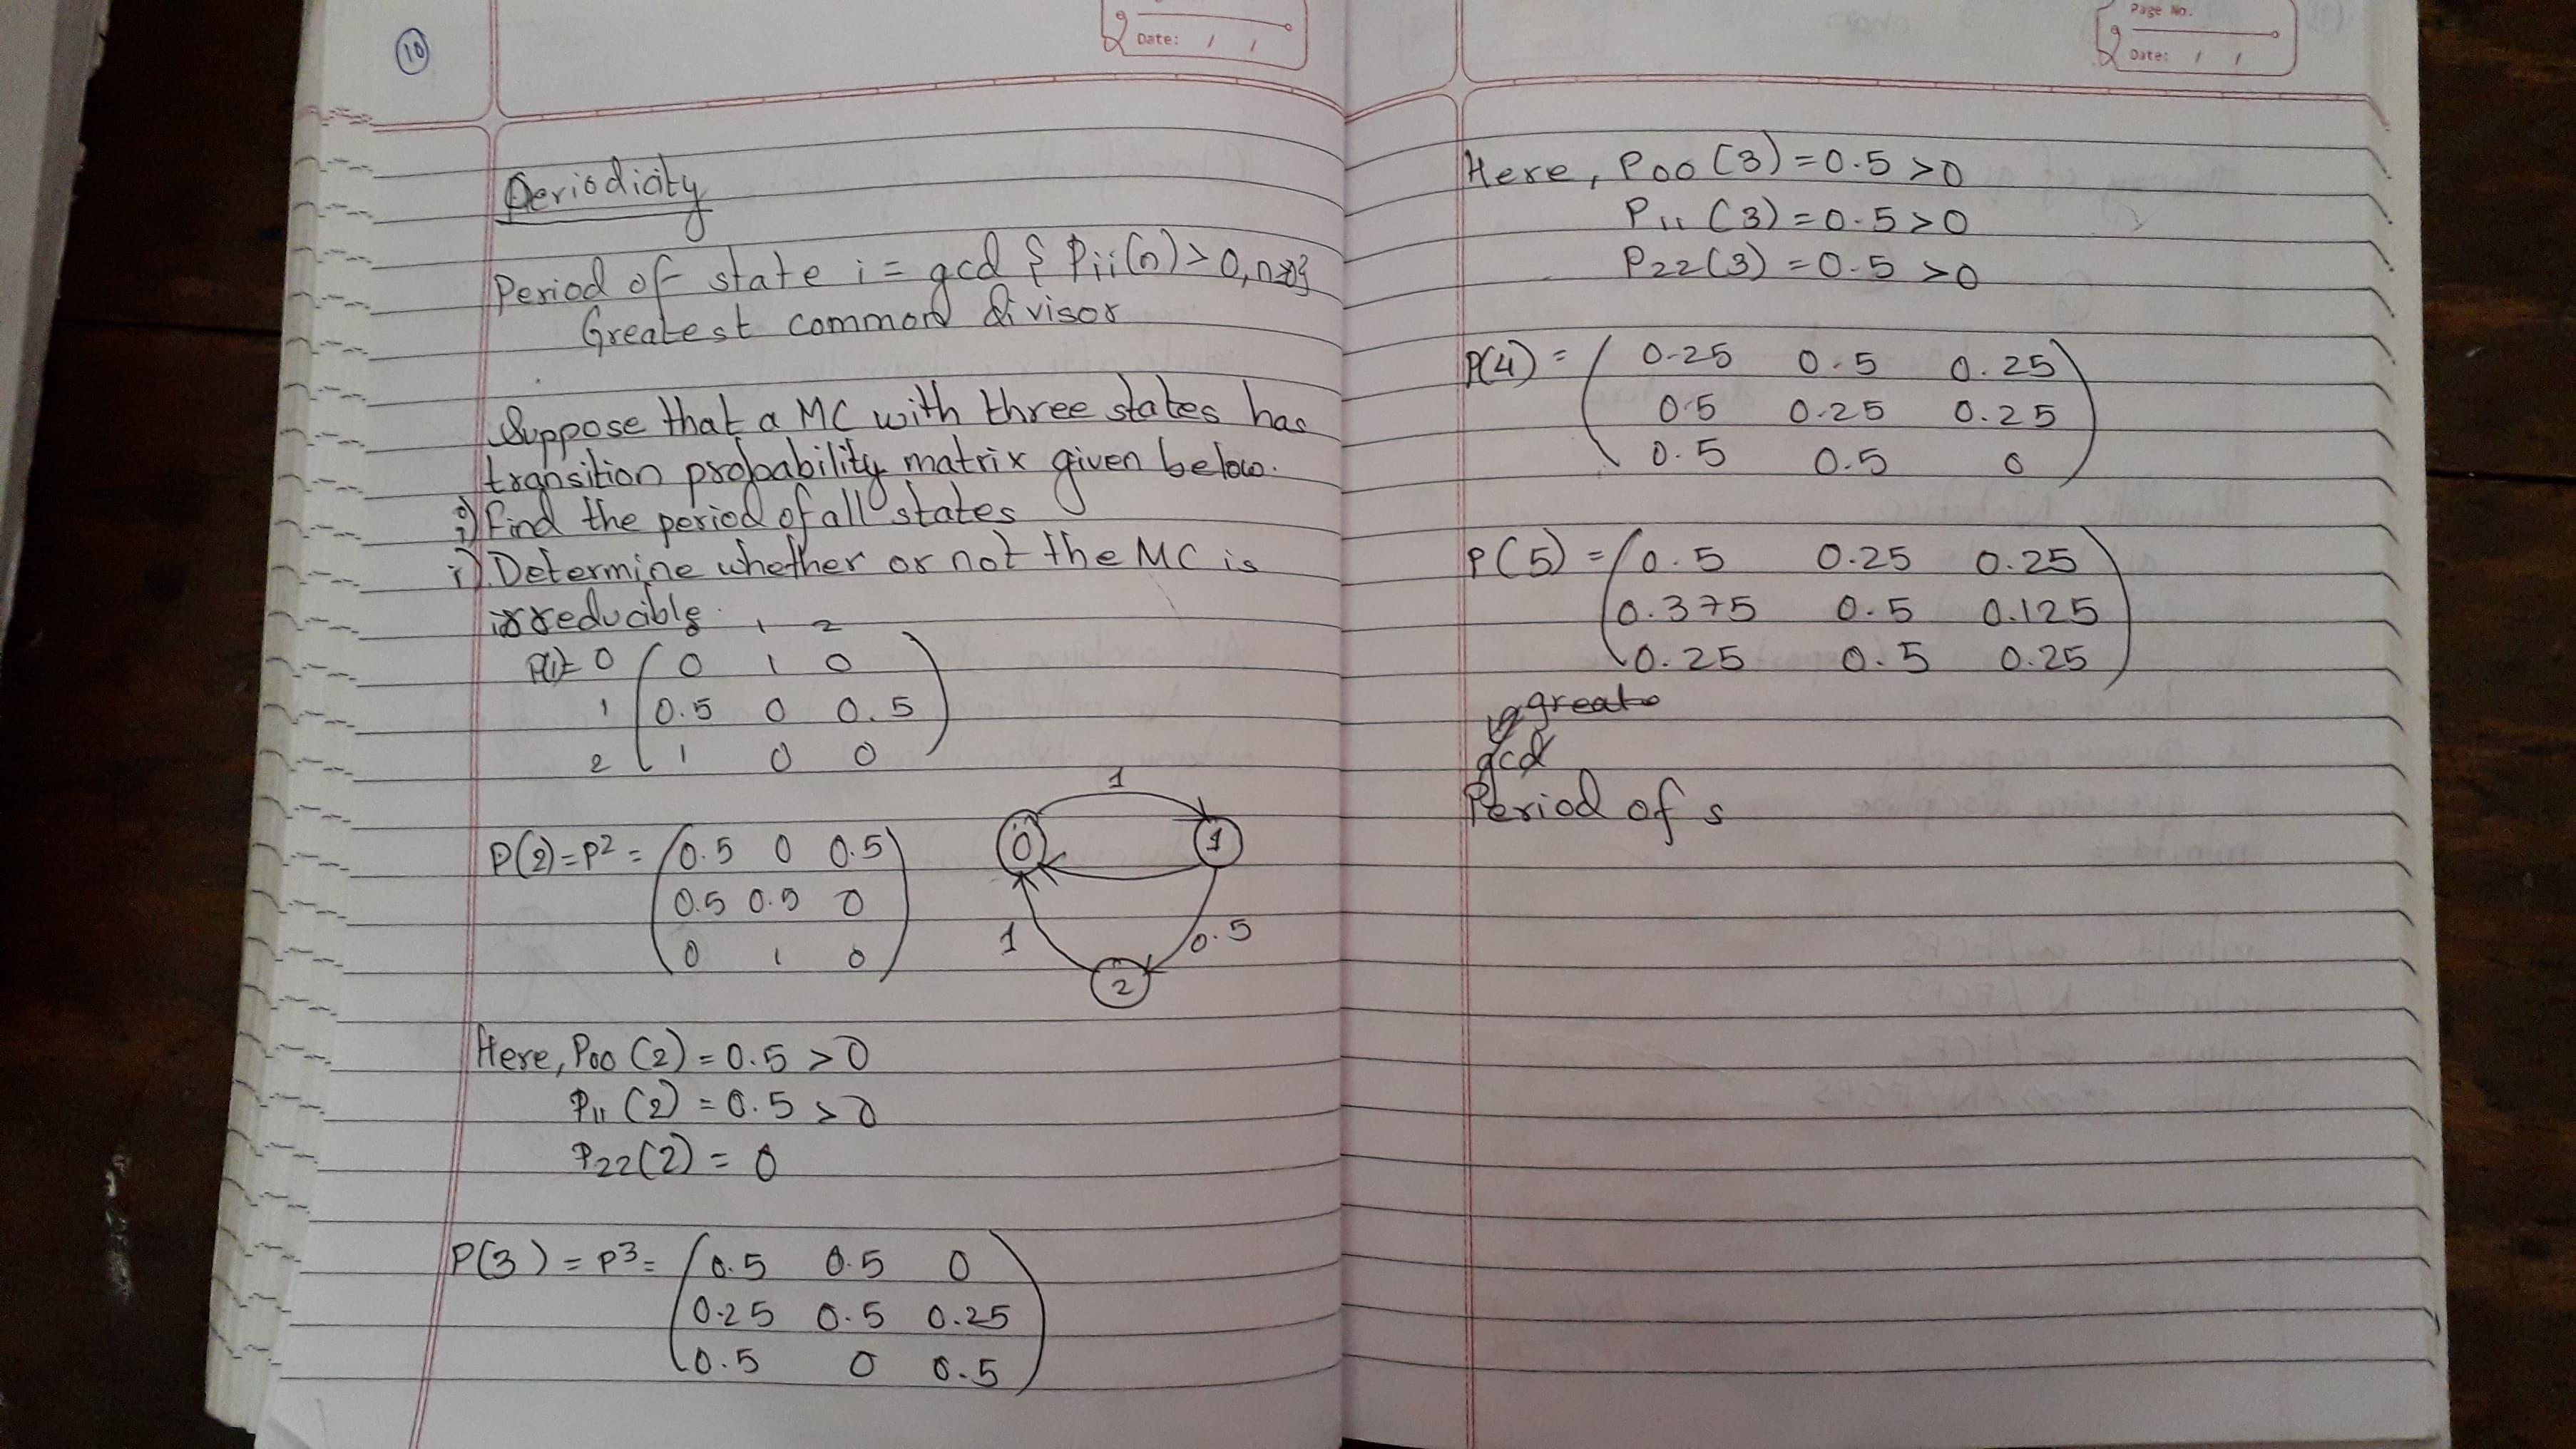 10
Date: / /
Periodicity
Period of state i = gcd { Pii(n) > 0, n≥1}
Greatest common divisor
Suppose that a MC with three states has
transition probability matrix given below.
i) Find the period of all states
i) Determine whether or not the MC is
irreducible.
0 1 2
P(1)= 0 0 1 0
1 0.5 0 0.5
2 1 0 0
P(2) = P2 = 0.5 0 0.5
0.5 0.5 0
0 1 0
1
0 1
1 0.5
2
Here, P00 (2) = 0.5 > 0
P11 (2) = 0.5 > 0
P22 (2) = 0
P(3) = P3 = 0.5 0.5 0
0.25 0.5 0.25
0.5 0 0.5
Page No.
Date: / /
Here, P00 (3) = 0.5 > 0
P11 (3) = 0.5 > 0
P22 (3) = 0.5 > 0
P(4) = 0.25 0.5 0.25
0.5 0.25 0.25
0.5 0.5 0
P(5) = 0.5 0.25 0.25
0.375 0.5 0.125
0.25 0.5 0.25
great
gcd
Period of s